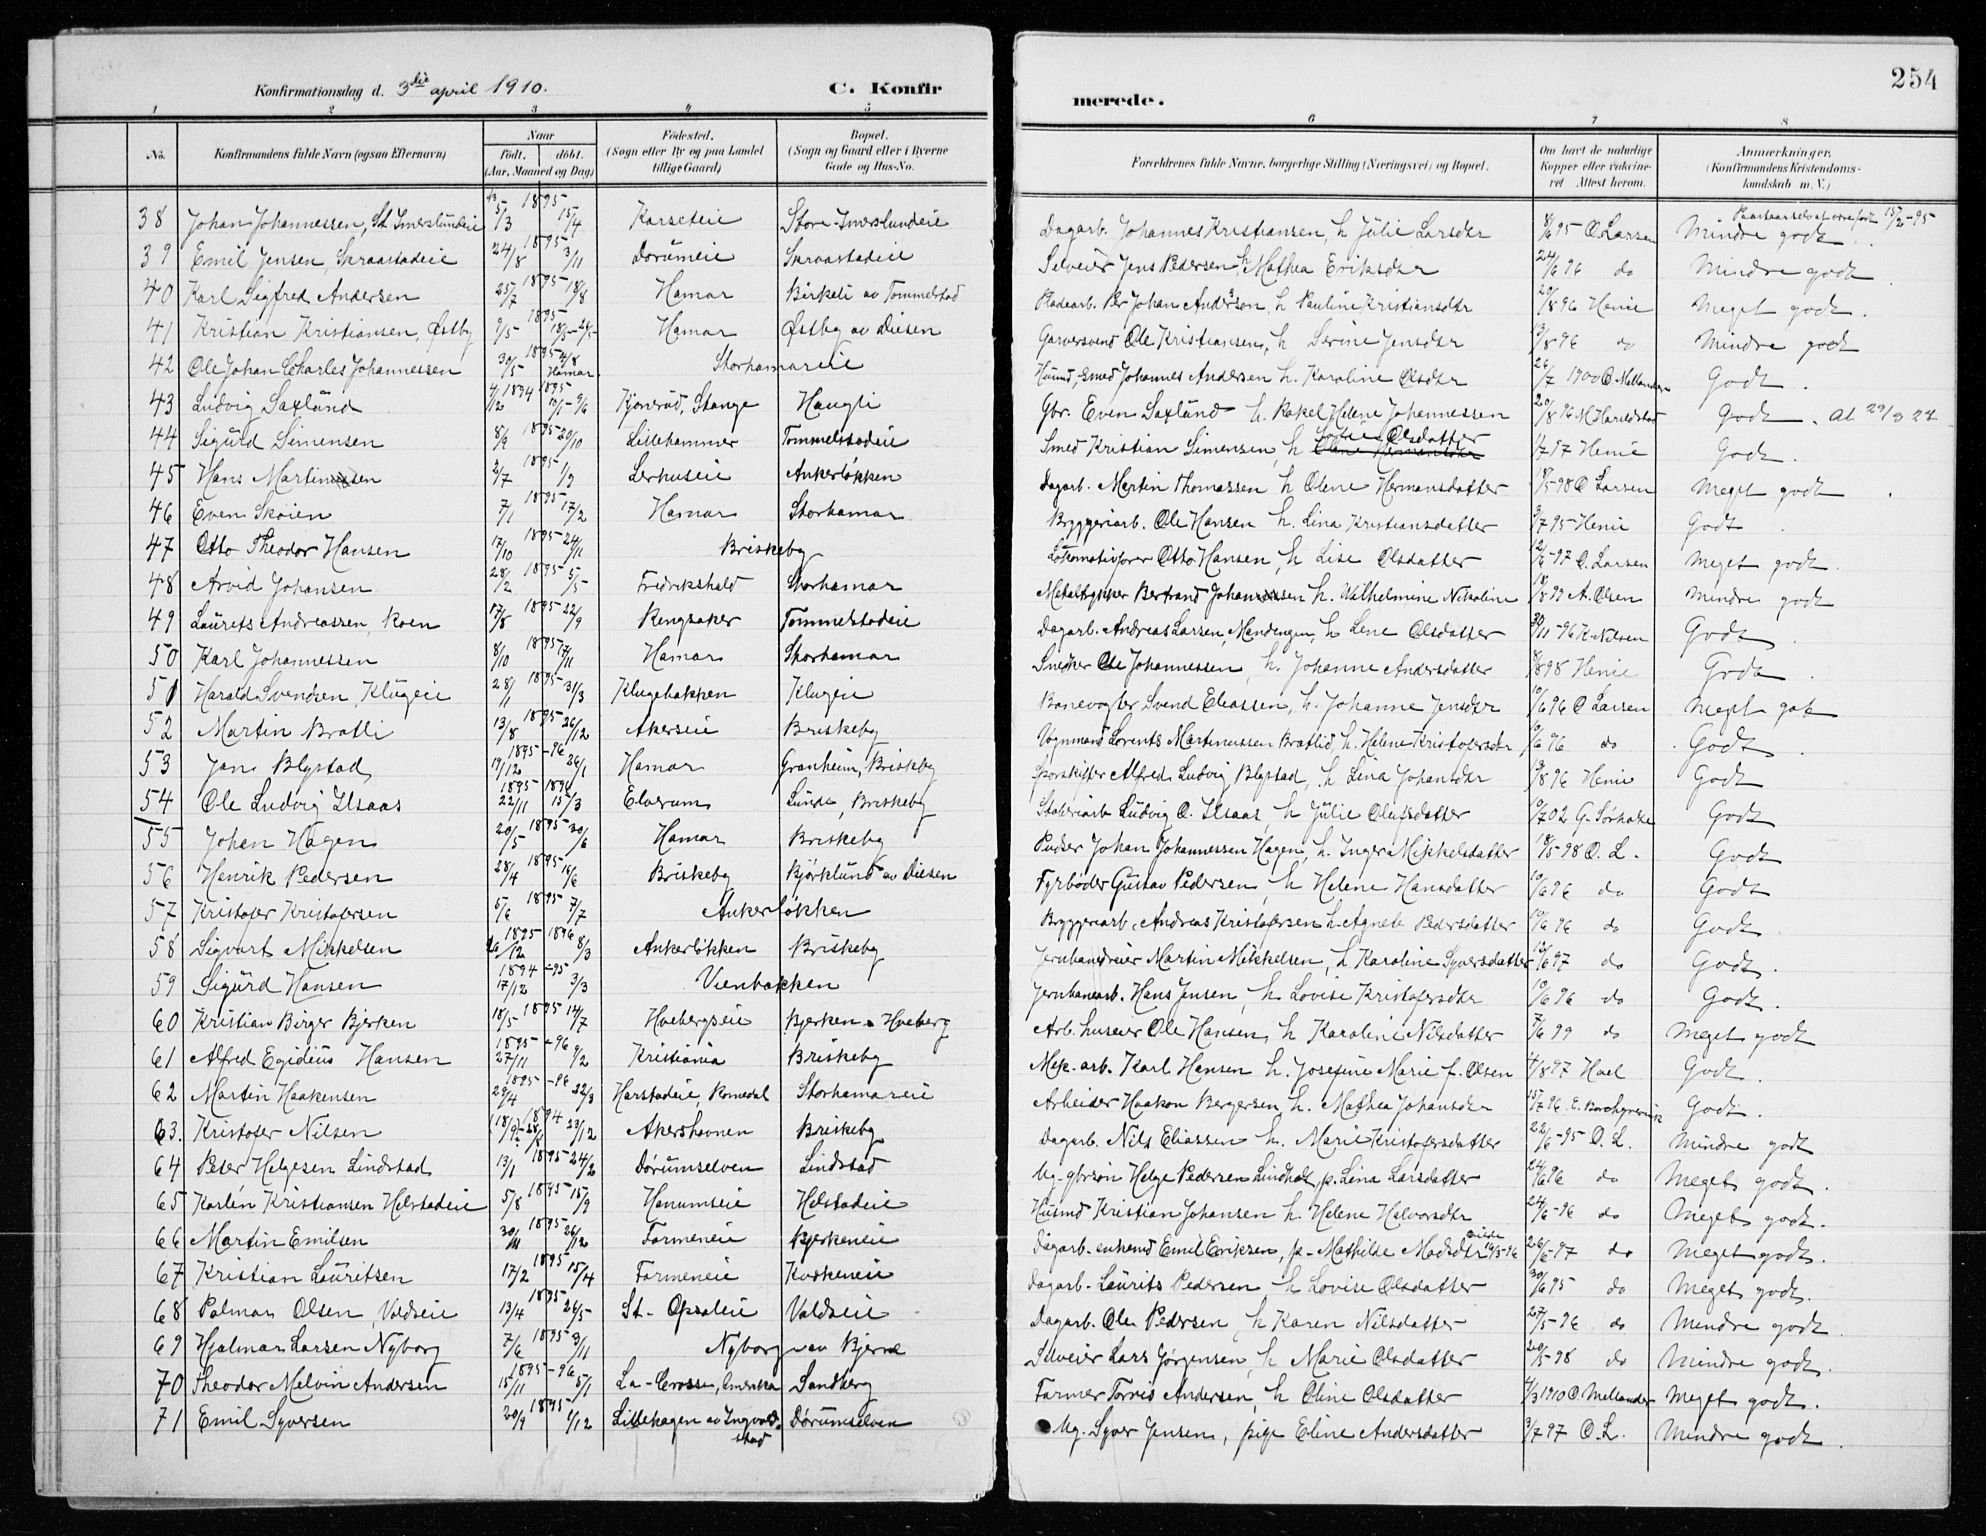 254
Konfirmationsdag d. 3die april 1910.
C. Konfir
merede.
1 2 3 4 5 6 7 8
No.
Konfirmandens fulde Navn (ogsaa Efternavn)
Naar
født. døbt.
(Aar, Maaned og Dag)
Fødested.
(Sogn eller By og paa Landet
tillige Gaard)
Bopæl.
(Sogn og Gaard eller i Byerne
Gade og Hus-No.
Forældrenes fulde Navne, borgerlige Stilling (Næringsvei) og Bopæl.
Om havt de naturlige
Kopper eller vakcine-
ret. Attest herom.
Anmærkninger.
(Konfirmandens Kristendoms-
kundskab m. V.)
38 Johan Johannessen, St. Imerslundeie 1895 5/3 15/4 Karseteie Store-Imerslundeie Dagarb. Johannes Kristiansen, h Julie Larsdtr 8/6 95 O. Larsen Mindre godt 15/2-95
39 Emil Jensen, Skraastadeie 24/8 1895 3/11 Dørumeie Skraastadeie Selveier Jens Pedersen, h Mathea Eriksdtr 24/6 96 do Mindre godt
40 Karl Sigfred Andersen 25/7 1895 18/8 Hamar Birkeli av Tommelstad Pladearb. Per Johan Anderson, h Pauline Kristiansdtr 20/8 96 Henie Meget godt.
41 Kristian Kristiansen, Østby 9/5 1895 Hamar Østby av Disen Garversvend Ole Kristiansen, h Serine Jensdtr 13/8 96 do Mindre godt
42 Ole Johan Charles Johannessen 30/5 1895 4/8 Hamar Storhamareie Husmd, smed Johannes Andersen h. Karoline Olsdtr 26/7 1900 O. Mellander Godt.
43 Ludvig Saxlund 4/12 1894 1895 Kjonerud, Stange Haugli Gbr. Even Saxlund h. Rakel Helene Johannessen 20/8 96 M. Haraldstad Godt. At 29/3 27
44 Sigurd Simensen 8/9 1895 20/10 Lillehammer Tommelstadeie Smed Kristian Simensen, h Sofie Olsdatter Olene Hermansdtr 1/7 97 Henie Godt.
45 Hans Martinsen 2/7 1895 1/9 Lerhuseie Ankerløkken Dagarb. Martin Thomassen h Olene Hermansdatter 18/5-98 O Larsen Meget godt.
46 Even Skøien 7/1 1895 17/2 Hamar Storhamar Bryggeriarb. Ole Hansen h. Lina Kristiansdatter 3/7 95 Henie Godt.
47 Otto Theodor Hansen 17/10 1895 24/11 Briskeby Lokomotivfører Otto Hansen, h Lise Olsdatter 12/6-97 O. Larsen Meget godt.
48 Arvid Johansen 28/2 1895 5/5 Fredrikshald Storhamar Metaltrykker Bertrand Johansen h. Wilhelmine Nikoline 18/8 99 A. Olsen Mindre godt
49 Laurits Andreassen, Roen 17/8 1895 22/9 Ringsaker Tommelstadeie Dagarb. Andreas Larsen, Mendengen, h Lene Olsdatter 30/11-96 K. Nilsen Godt.
50 Karl Johannessen 8/10 1895 17/11 Hamar Storhamar Snedker Ole Johannessen, h. Johanne Andersdatter 8/8 98 Henie Godt.
51 Harald Svendsen, Klugeie 28/1 1895 31/3 Klugebakken Klugeie Banevogter Svend Eliassen, h. Johanne Jensdtr 10/6 96 O Larsen Meget godt
52 Martin Bratli 13/8 1895 26/12 Akerseie Briskeby Vognmand Lorents Martinussen Bratlid, h. Helene Kristofersdtr 10/6 96 do Godt.
53 Jens Blystad 19/12 1895-96 26/1 Hamar Granheim, Briskeby Sporskifter Alfred Ludvig Blystad, h Lina Johansdtr 13/8 96 Henie Godt
54 Ole Ludvig Ilsaas 22/11 1895-1896 15/3 Elverum Lunde, Briskeby Støberiarb Ludvig O. Ilsaas, h Julie Olufsdatter 10/7 02 G. Sørhalse Godt
55 Johan Hagen 20/5 1895 30/6 Hamar Briskeby Pudser Johan Johannessen Hagen, h. Inger Mikkelsdatter 18/5-98 O. L. Godt
56 Henrik Pedersen 28/4 1895 16/6 Briskeby Bjørklund av Disen Fyrbøder Gustav Pedersen, h Helene Hansdatter 10/6 96 do Godt
57 Kristofer Kristofersen 5/6 1895 7/7 Ankerløkken Bryggeriarb. Andreas Kristofersen h. Agnete Pedersdatter 10/6 96 do Godt.
58 Sigvart Mikkelsen 26/12 1895 1896 8/3 Ankerløkken Briskeby Jernbanedreier Martin Mikkelsen, h Karoline Syversdatter 12/6 97 do Godt.
59 Sigurd Hansen 17/12 1894-95 3/3 Vienbakken Jernbanearb. Hans Jensen, h. Lovise Kristofersdtr 10/6 96 do Godt.
60 Kristian Birger Bjerken 18/5 1895 14/7 Hvebergseie Bjerken av Hveberg Arb. huseier Ole Hansen, h Karoline Nilsdatter 7/6 99 do Meget godt
61 Alfred Egidius Hansen 27/11 1895-96 9/2 Kristiania Briskeby Mek. arb. Karl Hansen h. Josefine Marie f. Olsen 4/8 97 Hoel Godt.
62 Martin Haakensen 29/4 1895-96 22/3 Harstadeie, Romedal Storhamareie Arbeider Haakon Bergersen, h. Mathea Johansdtr 15/7 96. E. Borchgrevink Godt.
63. Kristofer Nilsen 1894 23/12 Akershavnen Briskeby Dagarb. Nils Eliassen h. Marie Kristofersdatter 22/6-95 O. L. Mindre godt
64 Peter Helgesen Lindstad 13/1 1895 24/2 Dørumselven Lindstad Ug. gbrsøn Helge Pedersen Lindholt, p. Lina Larsdatter 24/6 96 do Meget godt.
65 Karlén Kristiansen Helstadeie 5/8 1895 15/9 Hanumseie Helstadeie Husmd Kristian Johansen h. Helene Halvorsdtr 24/6-96 do Meget godt.
66 Martin Emilsen 30/11 1895 26/12 Farmeneie Bjerkeneie Dagarb. enkemd Emil Eriksen, p. Mathilde Madsdtr 26/6-97 do Meget godt.
67 Kristian Lauritsen 17/2 1895 15/4 Farmeneie Kurkeneie Dagarb. Laurits Pedersen, h Lovise Olsdatter 30/6 95 do Meget godt.
68 Palmar Olsen, Voldseie 13/4 1895 26/5 St. Opsaleie Voldseie Dagarb. Ole Pedersen, h Karen Nilsdatter 27/5-96 do Mindre godt.
69 Hjalmar Larsen Nyborg 7/6 1895 3/11 Nyborg av Bjerke Selveier Lars Jørgensen, h Marie Olsdatter 20/5-98 do Mindre godt.
70 Theodor Melvin Andersen 15/11 1895-96 5/1 La-Crosse, Amerika Sandberg Farmer Torris Andersen, h Oline Olsdatter 4/3 1910 O. Mellander Meget godt.
71 Emil Syversen 20/9 1895 1/12 Lillehagen av Ingvoldstad Dørumselven Ug. Syver Jensen, pige Eline Andersdatter 3/7 97 O. L. Mindre godt.